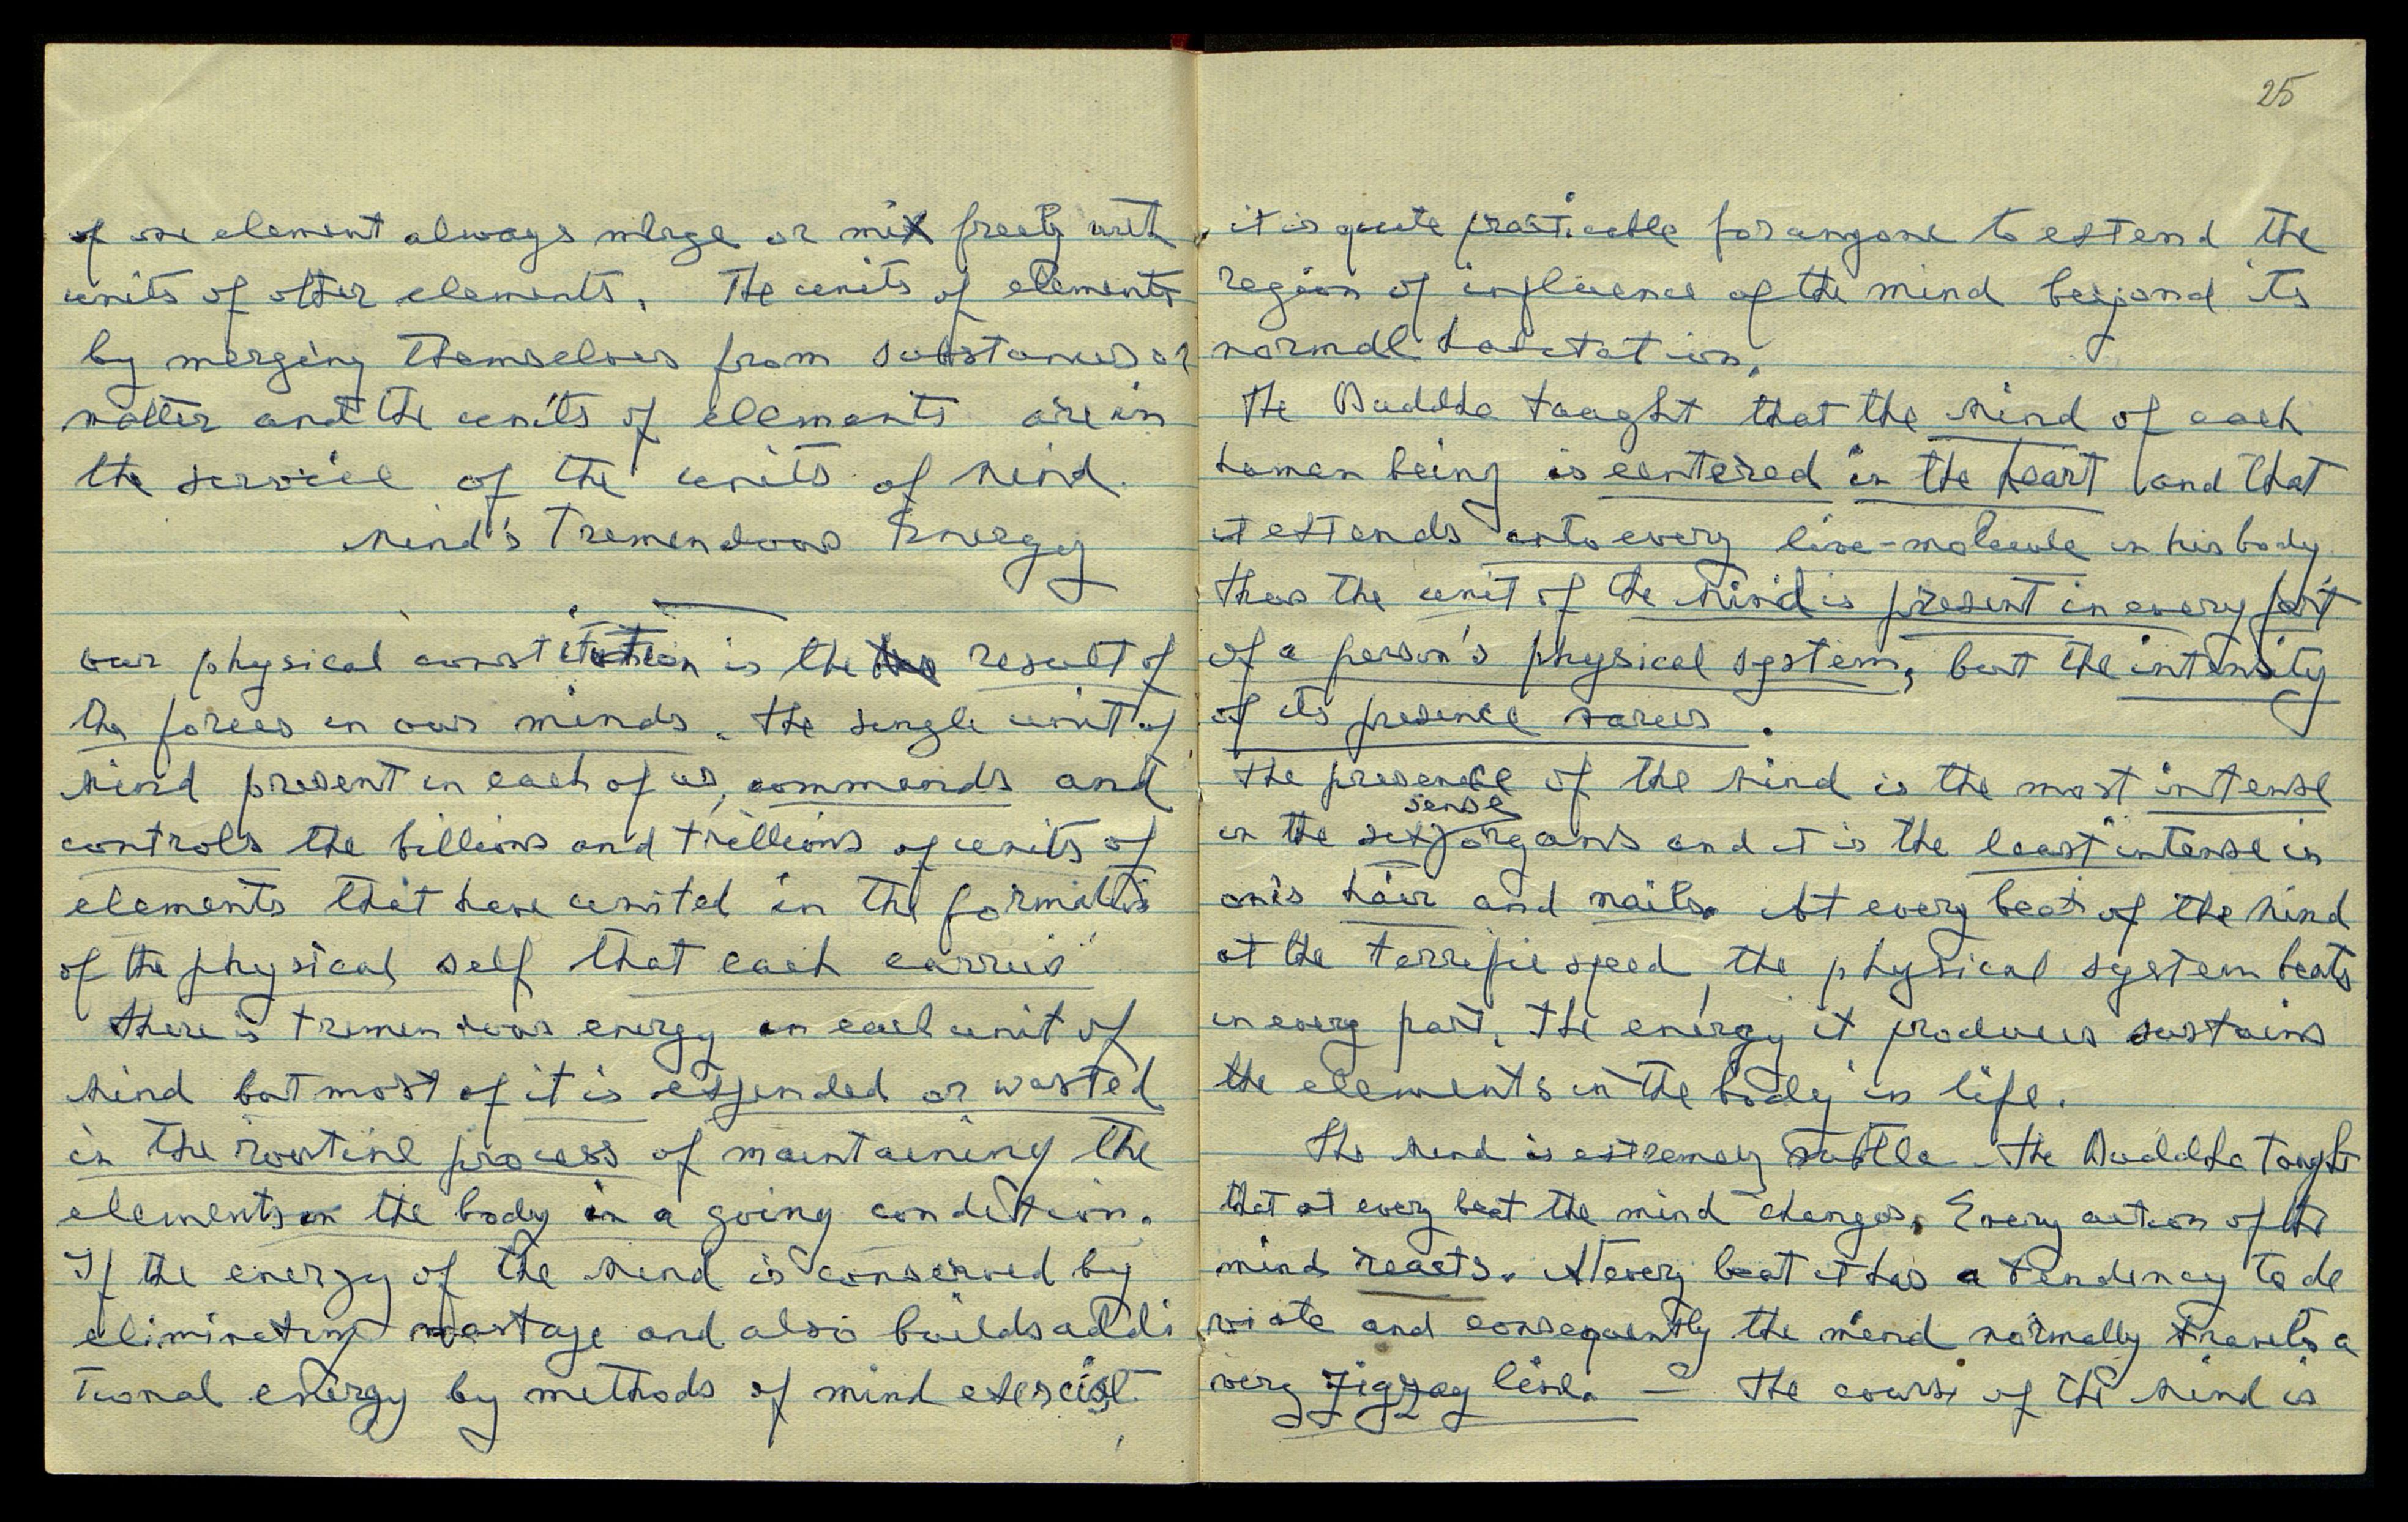 of one element always merge or mix freely with
units of other elements. The units of elements
by merging themselves from substances or
matter and the units of elements are in
the service of the units of Mind.
Mind's Tremendous Energy
our physical constitution is the result of
the forces in our minds. The single unit of
Mind present in each of us, commands and
controls the billions and trillions of units of
elements that have united in the formation
of the physical self that each carries
There is tremendous energy in each unit of
Mind but most of it is expended or wasted
in the routine process of maintaining the
elements in the body in a going condition.
If the energy of the Mind is conserved by
eliminating wastage and also builds addi
tional energy by methods of mind exercise
25
it is quite practicable for anyone to extend the
region of influence of the mind beyond its
normal habitation.
The Buddha taught that the Mind of each
human being is centered in the heart and that
it extends into every live-molecule in his body
thus the unit of the Mind is present in every part
of a person's physical system, but the intensity
of its presence varies.
The presence of the Mind is the most intense
in the six sense organs and it is the least intense in
one's hair and nails. At every beat of the Mind
at the terrific speed, the physical system beats
in every part. The energy it produces sustains
the elements in the body in life.
The Mind is extremely subtle. The Buddha taught
that at every beat the mind changes. Every action of the
mind reacts. At every beat it has a tendency to de
viate and consequently the mind normally travels a
very zigzag line. — The course of the Mind is